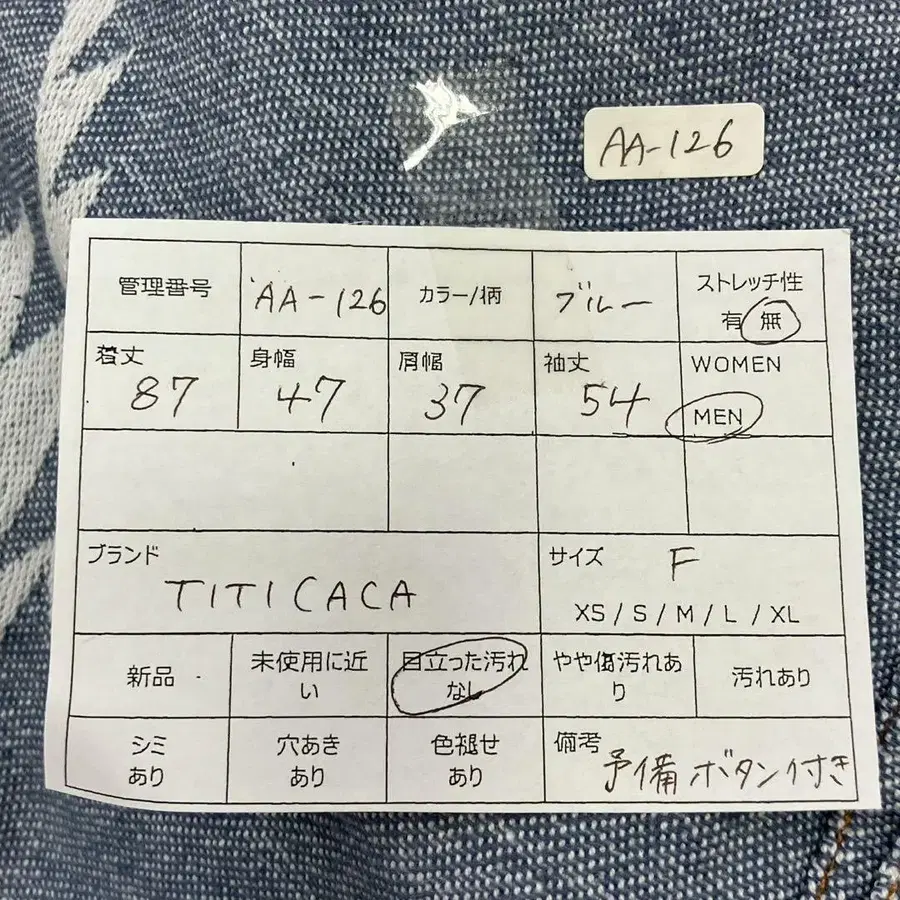 AA-126
管理番号
AA-126
カラー/柄
ブルー
ストレッチ性
有 無
着丈
87
身幅
47
肩幅
37
袖丈
54
WOMEN
MEN
ブランド
TITICACA
サイズ
F
XS / S / M / L / XL
新品
未使用に近
い
目立った汚れ
なし
やや傷汚れあ
り
汚れあり
シミ
あり
穴あき
あり
色褪せ
あり
備考
予備ボタン付き